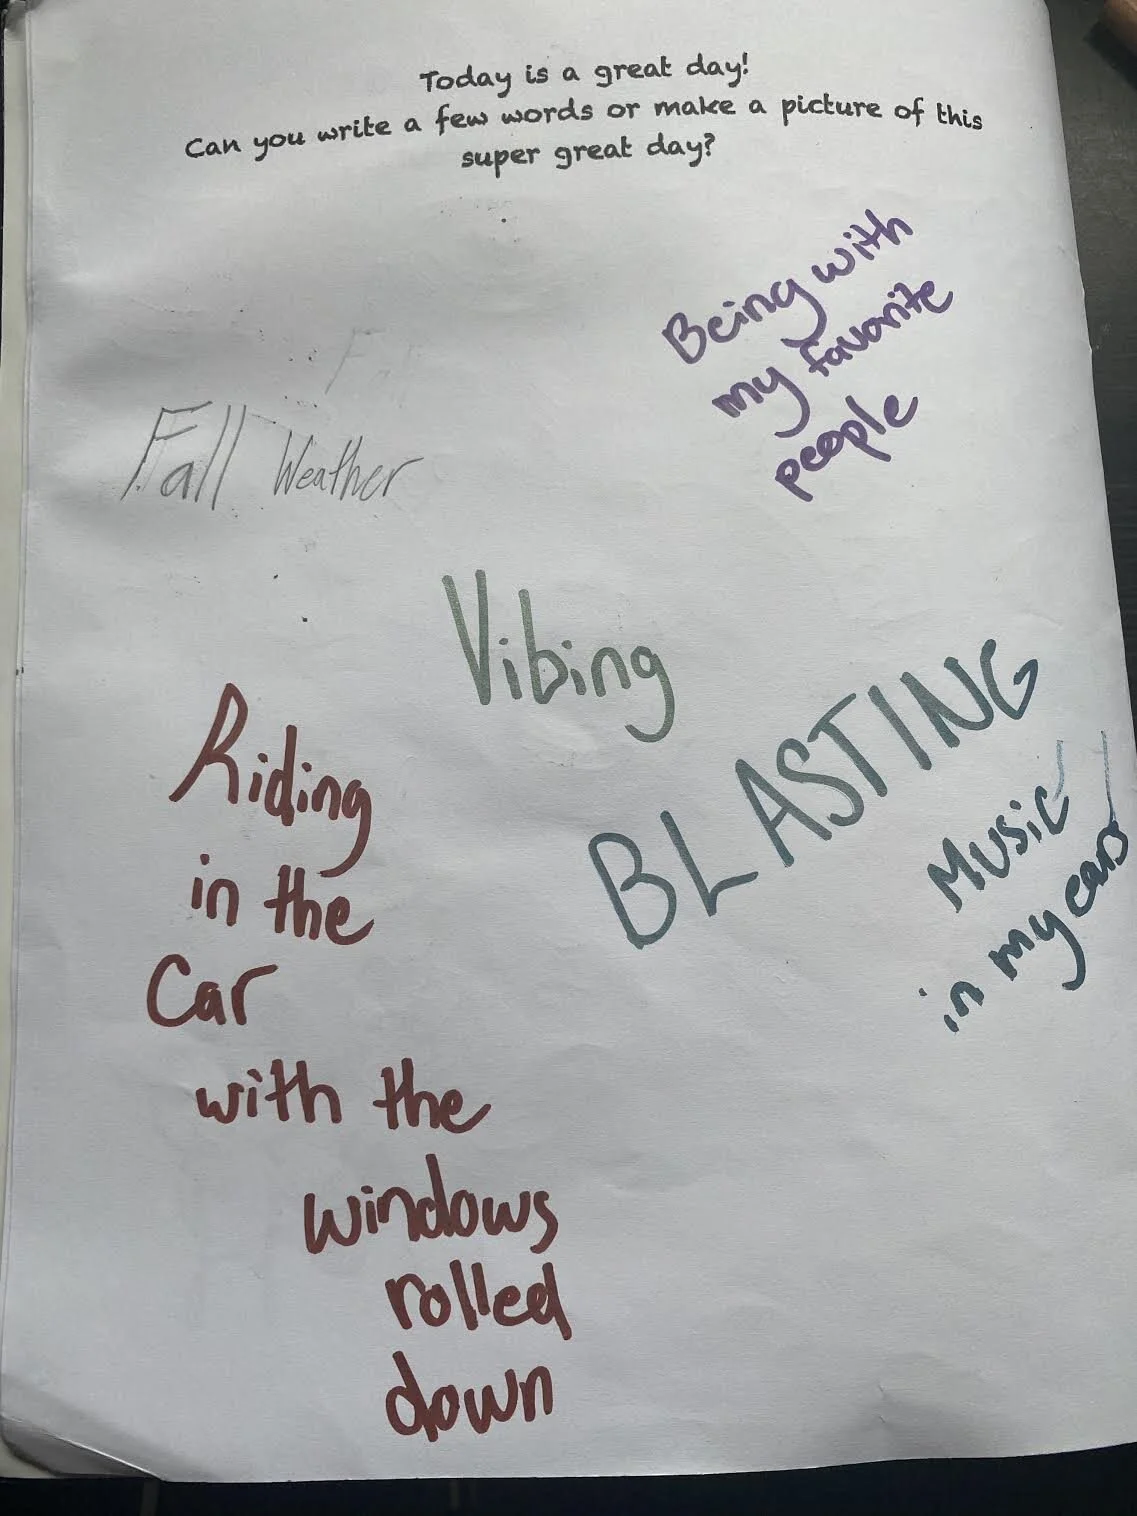 Today is a great day!
Can you write a few words or make a picture of this
super great day?
Being with
my favorite
people
Fall Weather
Vibing
BLASTING
Music
in my ears
Riding
in the
Car
with the
windows
rolled
down